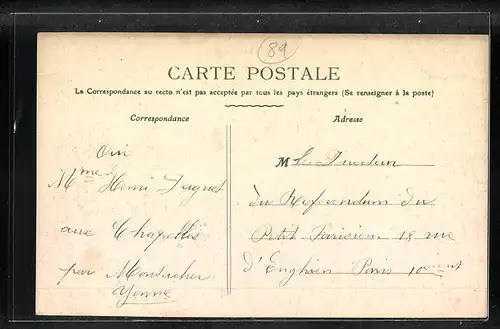 89
CARTE POSTALE
La Correspondance au recto n'est pas acceptée par tous les pays étrangers (Se renseigner à la poste)
Correspondance
Adresse
Oui
Mme Henri
aux Chapelles
par
Yonne
M Le Directeur
du Referendum du
Petit Parisien 18 rue
d'Enghien Paris 10